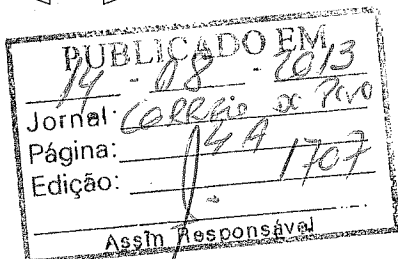 PUBLICADO EM
14 - 08 - 2013
Jornal: CORREIO DO POVO
Página: 4A
Edição: 1707
Assin Responsável